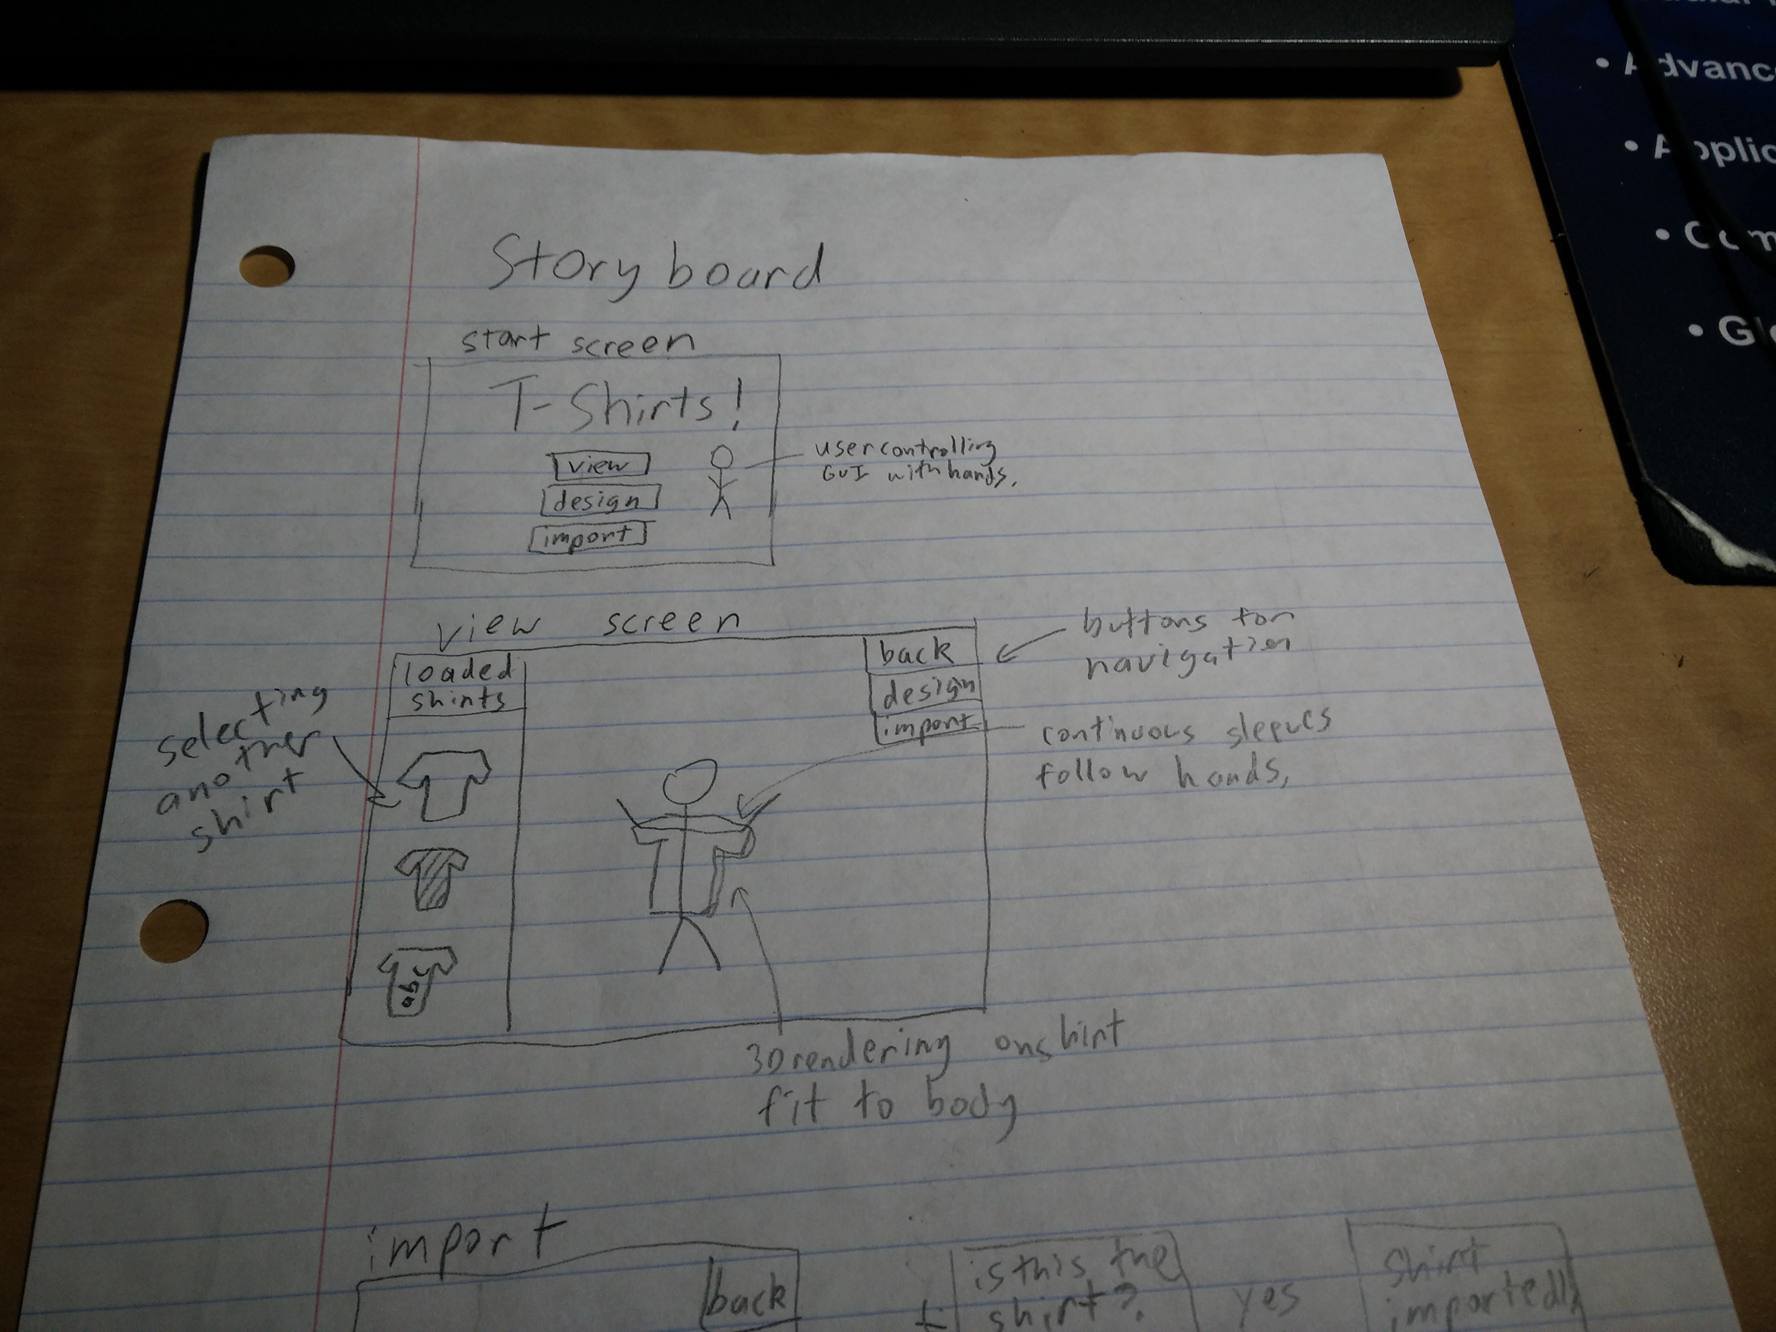 Story board
start screen
T-Shirts!
view
design
import
user controlling
GUI with hands.
view screen
loaded
shirts
back
design
import
buttons for
navigation
selecting
another
shirt
continuous sleeves
follow hands.
abc
3D rendering on shirt
fit to body
import
back
is this the
shirt?
yes
shirt
imported!
• Advanc
• Applic
• Com
• Glo